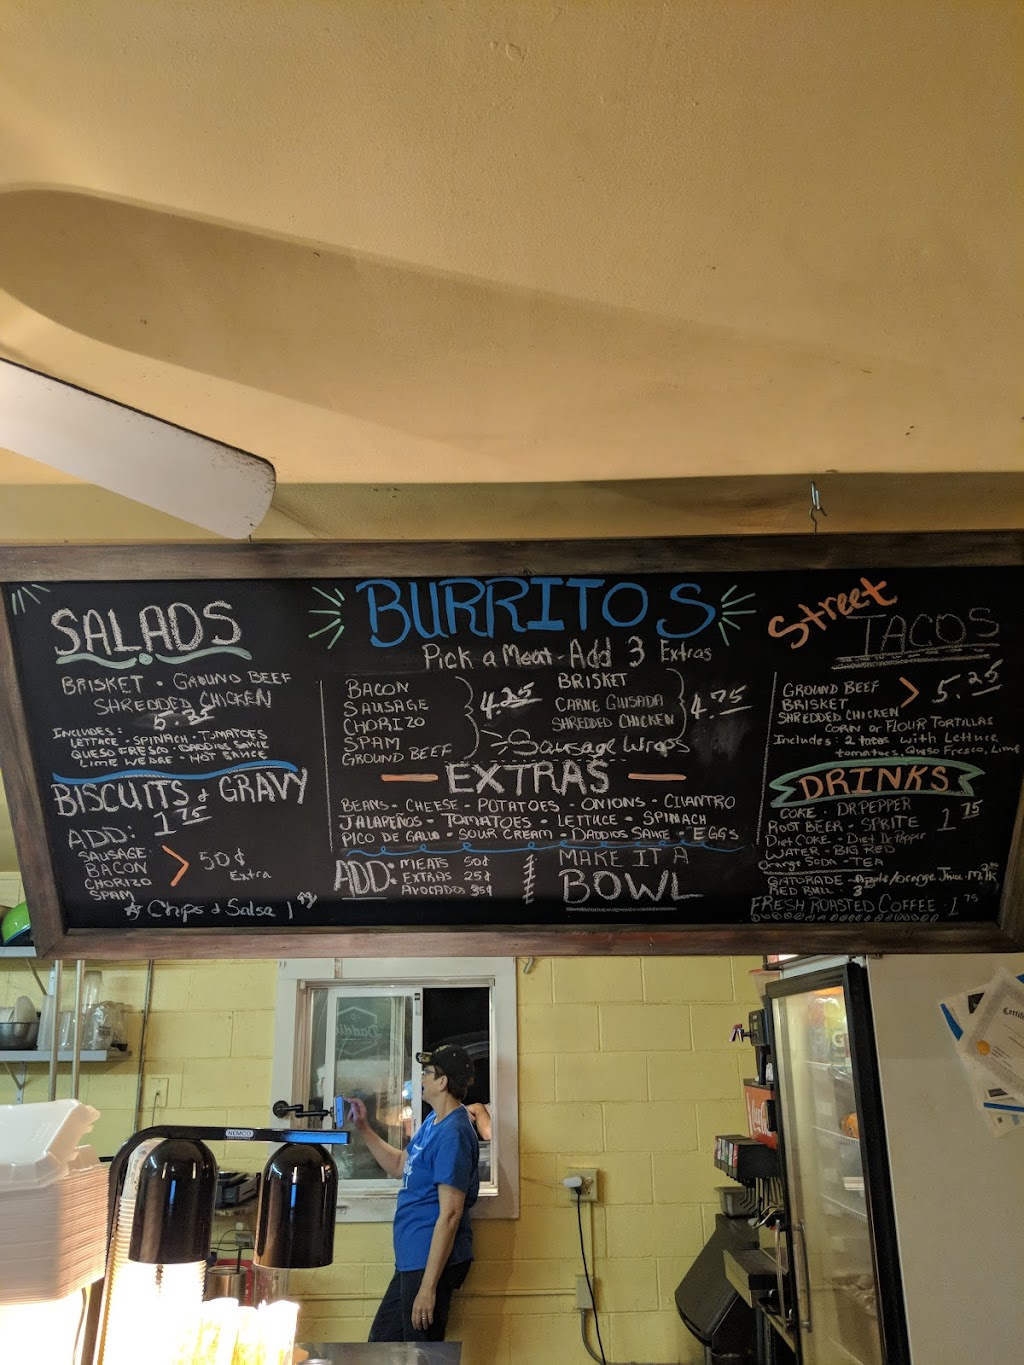 SALADS
BRISKET • GROUND BEEF
SHREDDED CHICKEN
INCLUDES:
LETTUCE - SPINACH - TOMATOES
QUESO FRESCO - DADDIOS SAUCE
LIME WEDGE - HOT SAUCE
BISCUITS & GRAVY
1 75
ADD:
SAUSAGE
BACON
CHORIZO
SPAM
50¢
Extra
Chips & Salsa 1
BURRITOS
Pick a Meat - Add 3 Extras
BACON
SAUSAGE
CHORIZO
SPAM
GROUND BEEF
4.25
BRISKET
CARNE GUISADA
SHREDDED CHICKEN
4.75
Sausage Wraps
EXTRAS
BEANS - CHEESE - POTATOES - ONIONS - CILANTRO
JALAPEÑOS - TOMATOES - LETTUCE - SPINACH
PICO DE GALLO - SOUR CREAM - DADDIOS SAUCE - EGGS
ADD:
MEATS 50¢
EXTRAS 25¢
AVOCADOS 35¢
MAKE IT A
BOWL
Street
TACOS
GROUND BEEF
BRISKET
SHREDDED CHICKEN
5.25
CORN or FLOUR TORTILLAS
Includes: 2 tacos with Lettuce
tomatoes, Queso Fresco, Lime
DRINKS
COKE - DR PEPPER
ROOT BEER - SPRITE
1 75
Diet COKE - Diet Dr Pepper
WATER - BIG RED
Orange Soda - TEA
GATORADE - Apple/Orange Juice - Milk
RED BULL 3
FRESH ROASTED COFFEE - 1 75
NEMCO